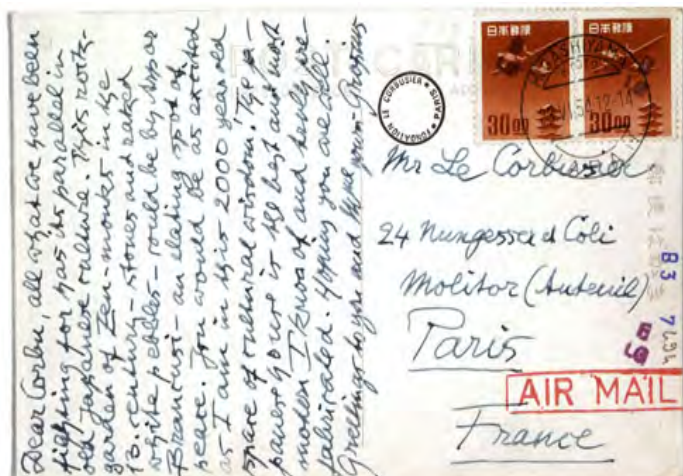 Dear Corbu, all what we have been
fighting for has its parallel in
old Japanese culture. This rock-
garden of Zen-monks in the
13. century - stones and raked
white pebbles - could be by Arp or
Brancusi - an elating spot of
peace. You would be as excited
as I am in this 2000 years old
space of cultural wisdom! The ja-
panese house is the best and most
modern I know of and really pre-
fabricated. Hoping you are well.
Greetings to you and your
POST CARD
FONDATION LE CORBUSIER * PARIS *
日本郵便
日本郵便
30 00
30 00
HIGASHIYAMA
12-14
Mr Le Corbusier
24 Nungesser et Coli
Molitor (Auteuil)
Paris
France
AIR MAIL
B3